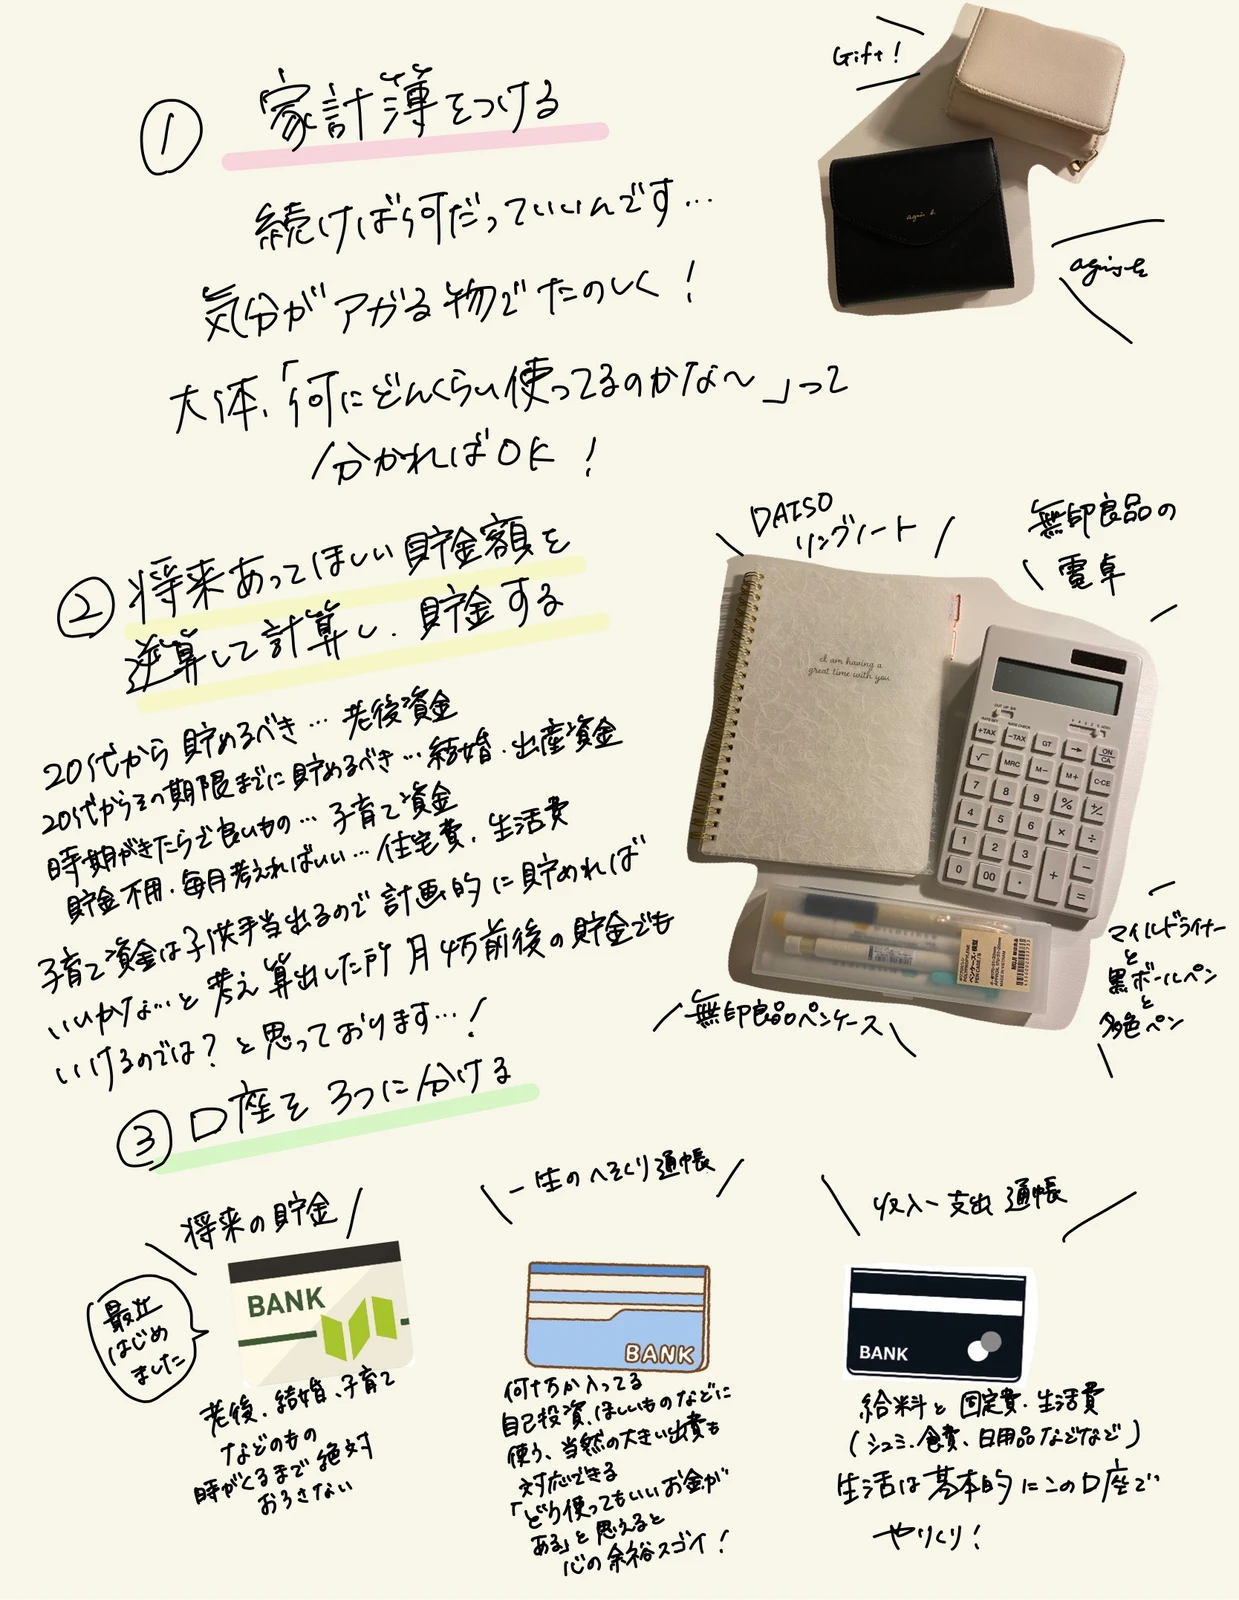 ① 家計簿をつける
続けば何だっていいんです…
気分がアガる物でたのしく!
大体、「何にどんくらい使ってるのかな〜」って
分かればOK!
Gift!
agnis b
agnis b.
② 将来あってほしい貯金額を
逆算して計算し、貯金する
20代から貯めるべき…老後資金
20代からその期限までに貯めるべき…結婚・出産資金
時期がきたらで良いもの…子育て資金
貯金不用・毎月考えればいい…住宅費、生活費
子育て資金は子供手当出るので計画的に貯めれば
いいかな…と考え算出した所月4万前後の貯金でも
いけるのでは?と思っております…!
DAISO
リングノート
無印良品の
電卓
I am having a
great time with you
+TAX -TAX GT → ON CA
√ MRC M- M+ C·CE
7 8 9 % +/-
4 5 6 × ÷
1 2 3 + -
0 00 · =
ペンケース
MUJI 無印良品
無印良品ペンケース
マイルドライナー
と
黒ボールペン
と
多色ペン
③ 口座を3つに分ける
将来の貯金
最近
はじめ
ました
BANK
老後、結婚、子育て
などのもの
時がくるまで絶対
おろさない
一生のへそくり通帳
BANK
何十万か入ってる
自己投資、ほしいものなどに
使う、当然の大きい出費も
対応できる
「どう使ってもいいお金が
ある」と思えると
心の余裕スゴイ!
収入ー支出 通帳
BANK
給料と固定費、生活費
(シュミ、食費、日用品などなど)
生活は基本的にこの口座で
やりくり!